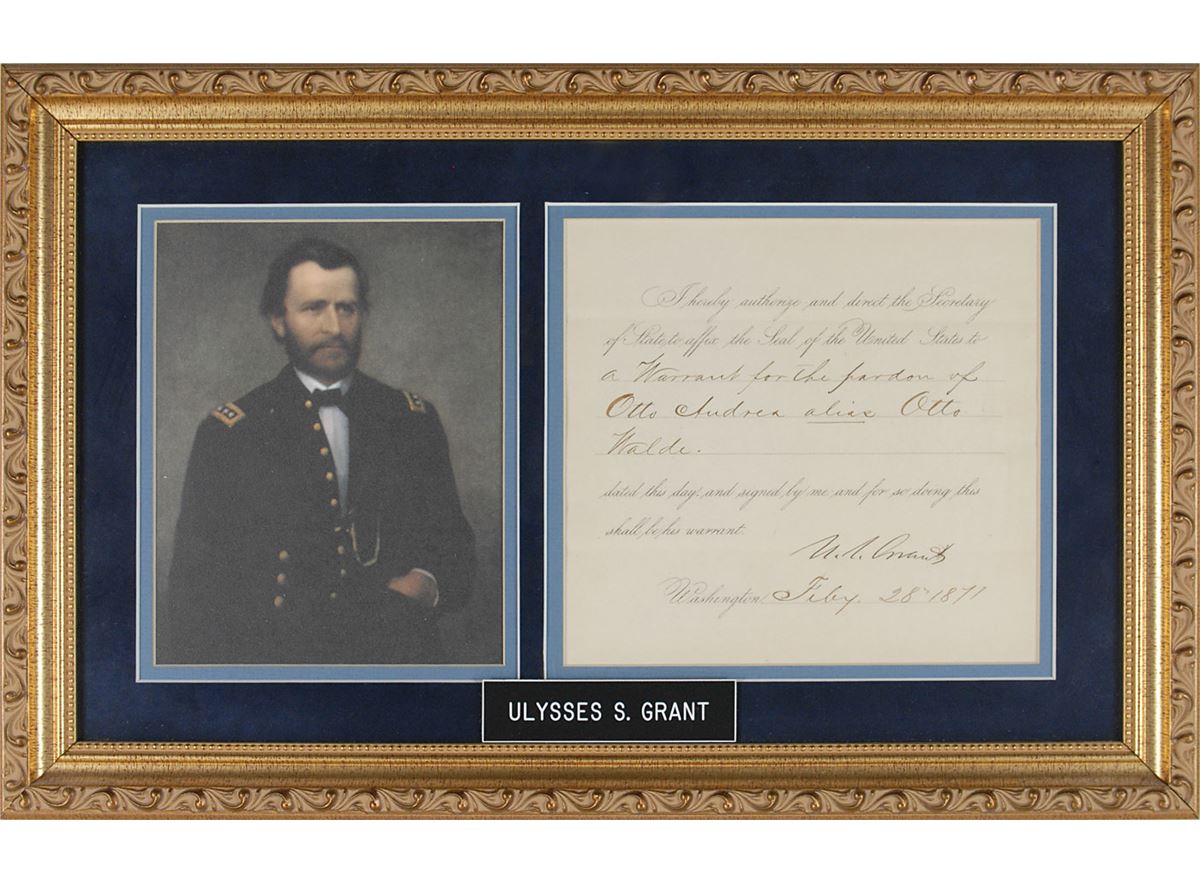 I hereby authorize and direct the Secretary
of State to affix the Seal of the United States to
a Warrant for the pardon of
Otto Andrea alias Otto
Walde.
dated this day, and signed by me and for so doing this
shall be his warrant.
U.S. Grant
Washington, Feby. 28th 1877
ULYSSES S. GRANT